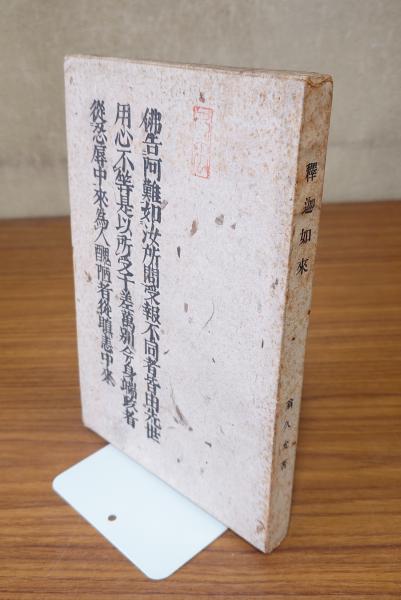 佛告阿難如汝所問受報不同者皆由先世
用心不等是以所受千差萬別今身端政者
從忍辱中來為人醜陋者從瞋恚中來
釋迦如來